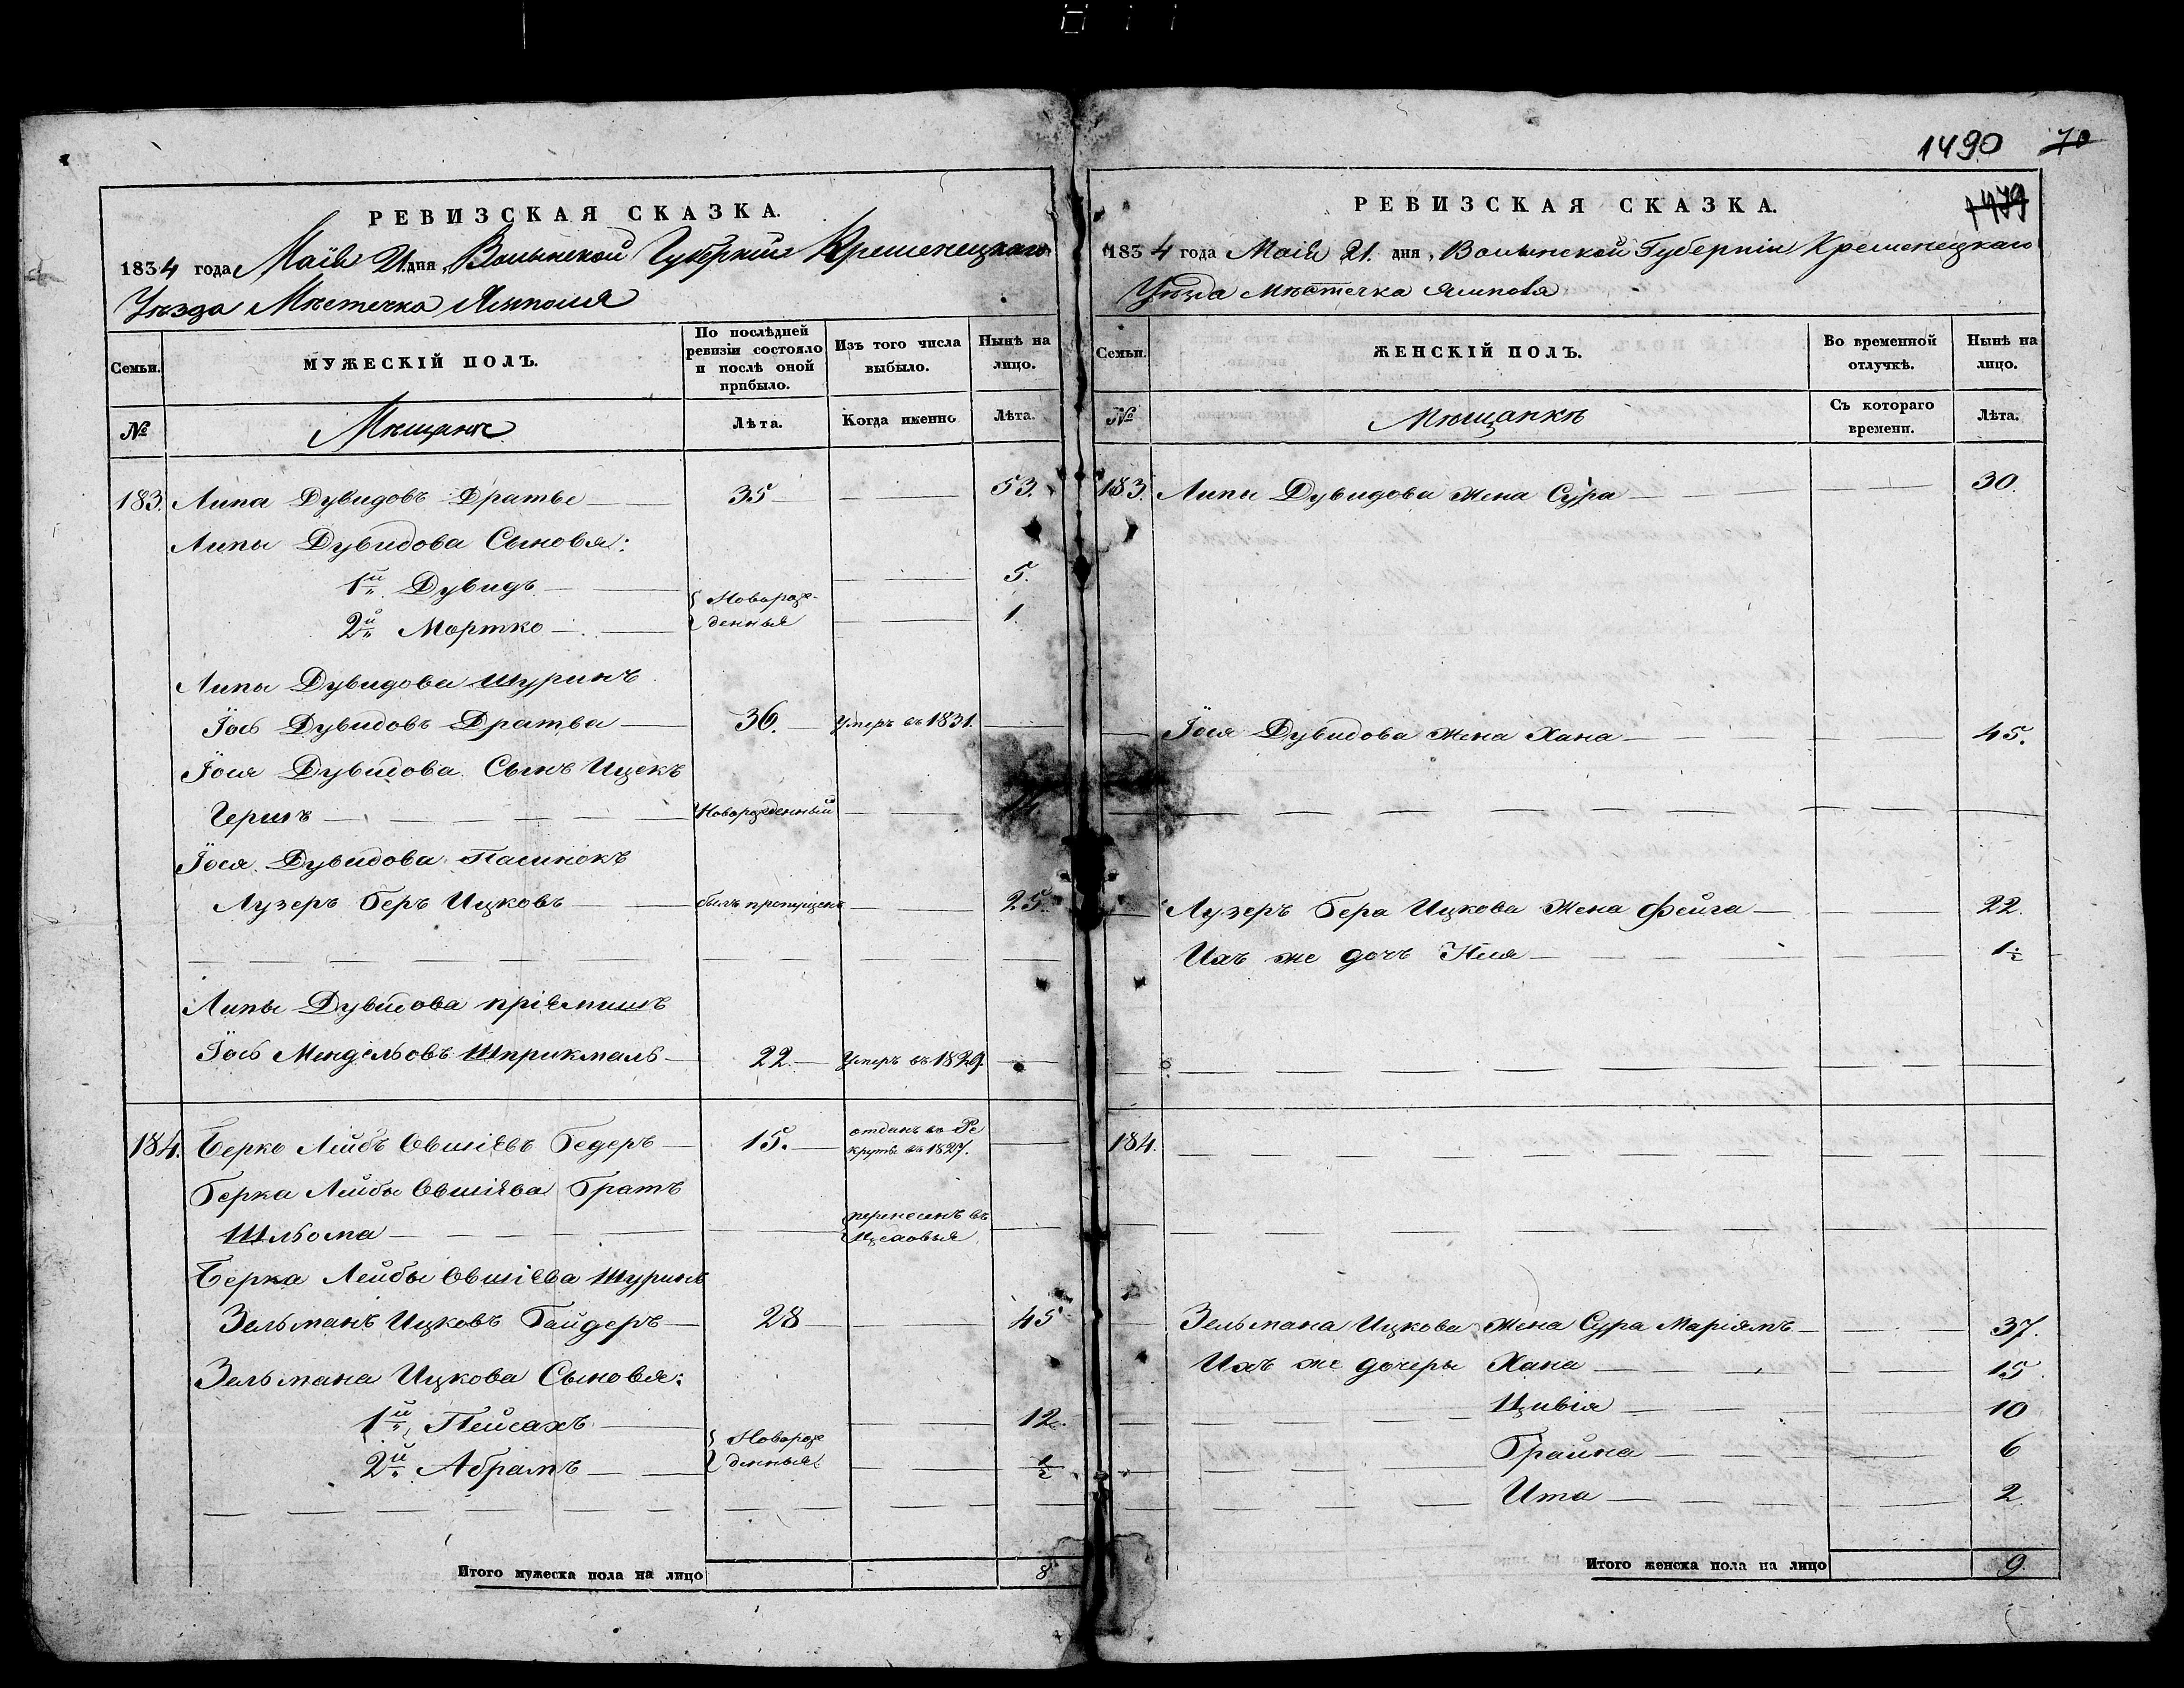 РЕВИЗСКАЯ СКАЗКА.
1834 года Маія 21 дня, Волынской Губерніи Кременецкаго
Уѣзда Мѣстечка Ямполя
Семьи.
МУЖЕСКІЙ ПОЛЪ.
По послѣдней ревизіи состояло и послѣ оной прибыло.
Изъ того числа выбыло.
Нынѣ на лицо.
№
Мѣщанѣ
Лѣта.
Когда именно
Лѣта.
183. Липа Дувидовъ Дратве 35 53.
Липы Дувидова Сыновья:
1й Дувидъ 5.
2й Мортко Новорожденныя 1.
Липы Дувидова шуринъ
Іось Дувидовъ Дратва 36. Умеръ въ 1831.
Іося Дувидова Сынъ Ицекъ
Гершъ Новорожденный
Іося Дувидова Пасинокъ
Лузеръ Беръ Ицковъ былъ пропущенъ 25.
Липы Дувидова пріемишъ
Іось Мендельовъ 22. Умеръ въ 1829.
184. Берко Лейбъ Овшіевъ Бедеръ 15. отданъ въ Рекруты въ 1827.
Берка Лейбы Овшіева Братъ
Шльома перенесенъ въ
Берка Лейбы Овшіева Шуринъ
Зельманъ Ицковъ Байдеръ 28 45
Зельмана Ицкова Сыновья:
1й Пейсахъ 12.
2й Абрамъ Новорожденныя ½
Итого мужеска пола на лицо 8
1490 70
1479
РЕВИЗСКАЯ СКАЗКА.
1834 года Маія 21. дня, Волынской Губерніи Кременецкаго
Уѣзда Мѣстечка Ямполя
Семьи.
ЖЕНСКІЙ ПОЛЪ.
Во временной отлучкѣ.
Нынѣ на лицо.
№
Мѣщанкѣ
Съ котораго времени.
Лѣта.
183. Липы Дувидова жена Сура 30.
Іося Дувидова жена Хана 45.
Лузеръ Бера Ицкова жена Фейга 22.
Ихъ же дочъ 1½
184.
Зельмана Ицкова жена Сура Маріямъ 37.
Ихъ же дочеры Хана 15
Цивія 10
Брайна 6
Ита 2.
Итого женска пола на лицо 9.